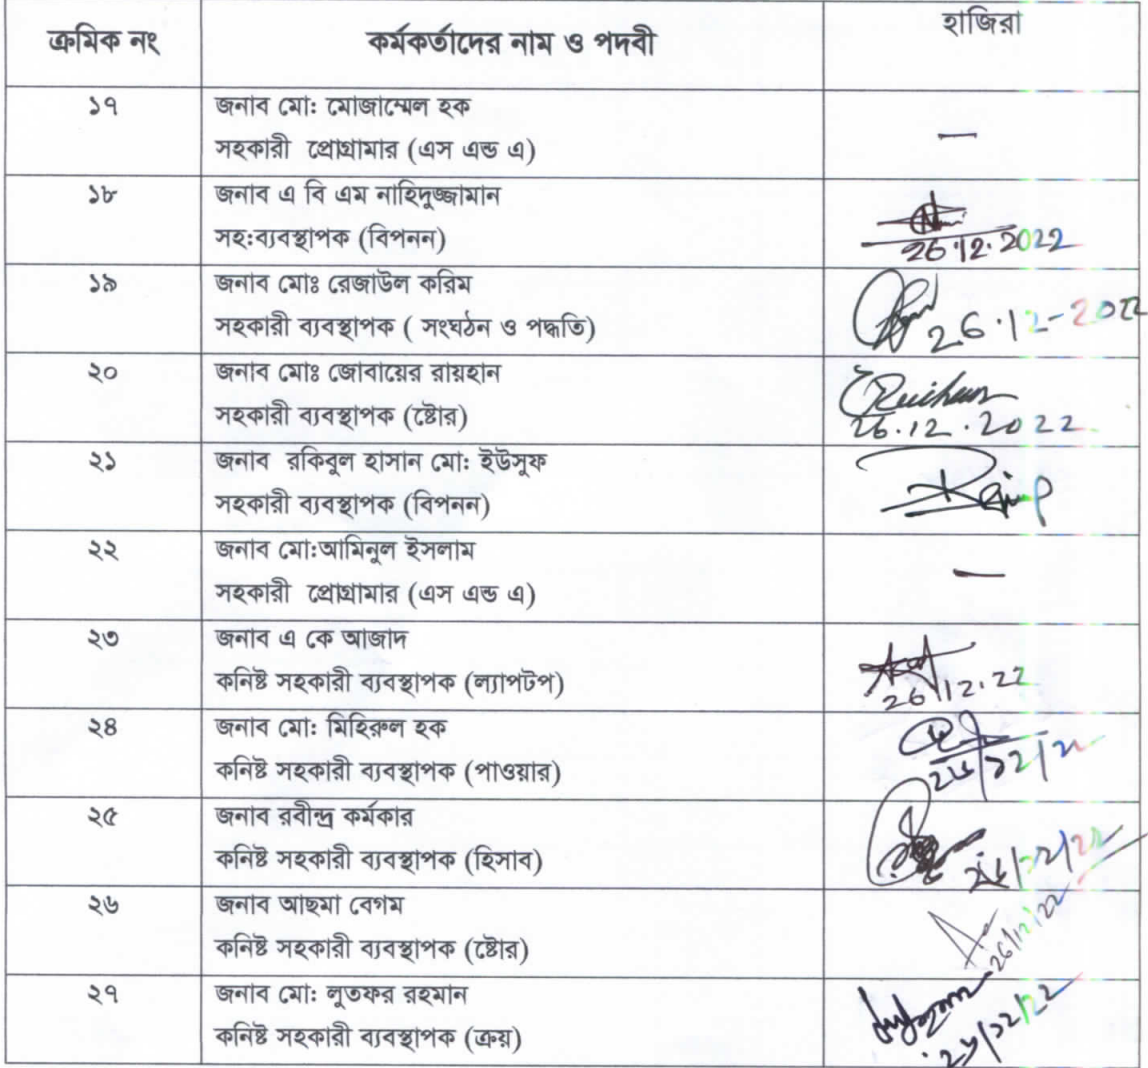 ক্রমিক নং কর্মকর্তাদের নাম ও পদবী হাজিরা
১৭ জনাব মো: মোজাম্মেল হক
সহকারী প্রোগ্রামার (এস এন্ড এ) —
১৮ জনাব এ বি এম নাহিদুজ্জামান
সহ:ব্যবস্থাপক (বিপনন) 26.12.2022
১৯ জনাব মোঃ রেজাউল করিম
সহকারী ব্যবস্থাপক ( সংঘঠন ও পদ্ধতি) 26.12-2022
২০ জনাব মোঃ জোবায়ের রায়হান
সহকারী ব্যবস্থাপক (ষ্টোর) 26.12.2022
২১ জনাব রকিবুল হাসান মো: ইউসুফ
সহকারী ব্যবস্থাপক (বিপনন)
২২ জনাব মো:আমিনুল ইসলাম
সহকারী প্রোগ্রামার (এস এন্ড এ) —
২৩ জনাব এ কে আজাদ
কনিষ্ট সহকারী ব্যবস্থাপক (ল্যাপটপ) 26.12.22
২৪ জনাব মো: মিহিরুল হক
কনিষ্ট সহকারী ব্যবস্থাপক (পাওয়ার)
২৫ জনাব রবীন্দ্র কর্মকার
কনিষ্ট সহকারী ব্যবস্থাপক (হিসাব)
২৬ জনাব আছমা বেগম
কনিষ্ট সহকারী ব্যবস্থাপক (ষ্টোর) 26/12/22
২৭ জনাব মো: লুতফর রহমান
কনিষ্ট সহকারী ব্যবস্থাপক (ক্রয়)